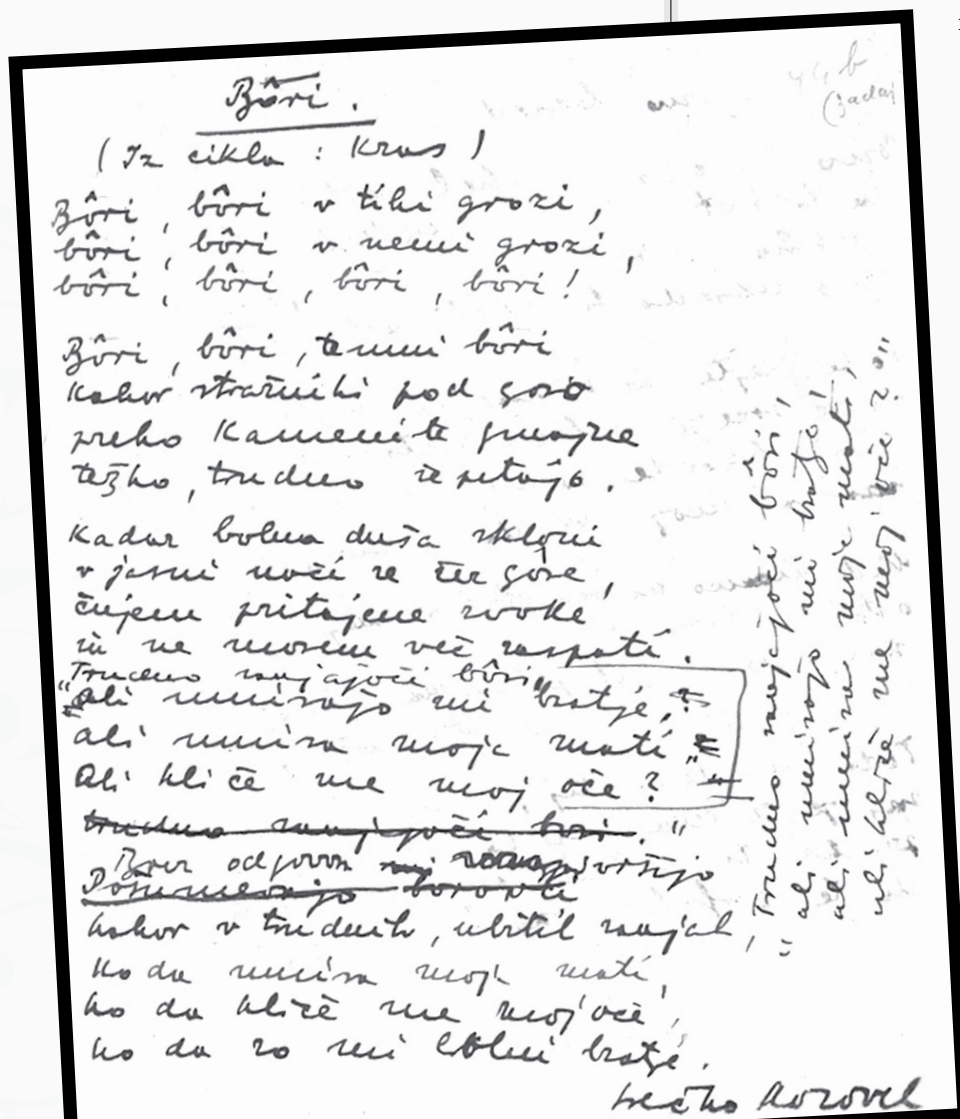 Bôri.
(Iz cikla: Kras)
Bôri, bôri v tihi grozi,
bôri, bôri v nemi grozi,
bôri, bôri, bôri, bôri!
Bôri, bôri, temni bôri
kakor stražniki pod goro
preko kamenite gmajne
težko, trudno šepetajo.
Kadar bolna duša skloni
v jasni noči se čez gore,
čujem pritajene zvoke
in ne morem več zaspati.
Trudno sanjajoči bôri,
"ali umirajo mi bratje,
ali umira moja mati
ali kliče me moj oče?
trudno sanjajoči bori."
Brez odgovora vršijo
kakor v trudnih, ubitih sanjah,
ko da umira moja mati,
ko da kliče me moj oče,
ko da so mi bolni bratje.
Srečko Kosovel
"Trudno sanjajoči bôri,
ali umirajo mi bratje,
ali umira moja mati,
ali kliče me moj oče?"
(zadaj